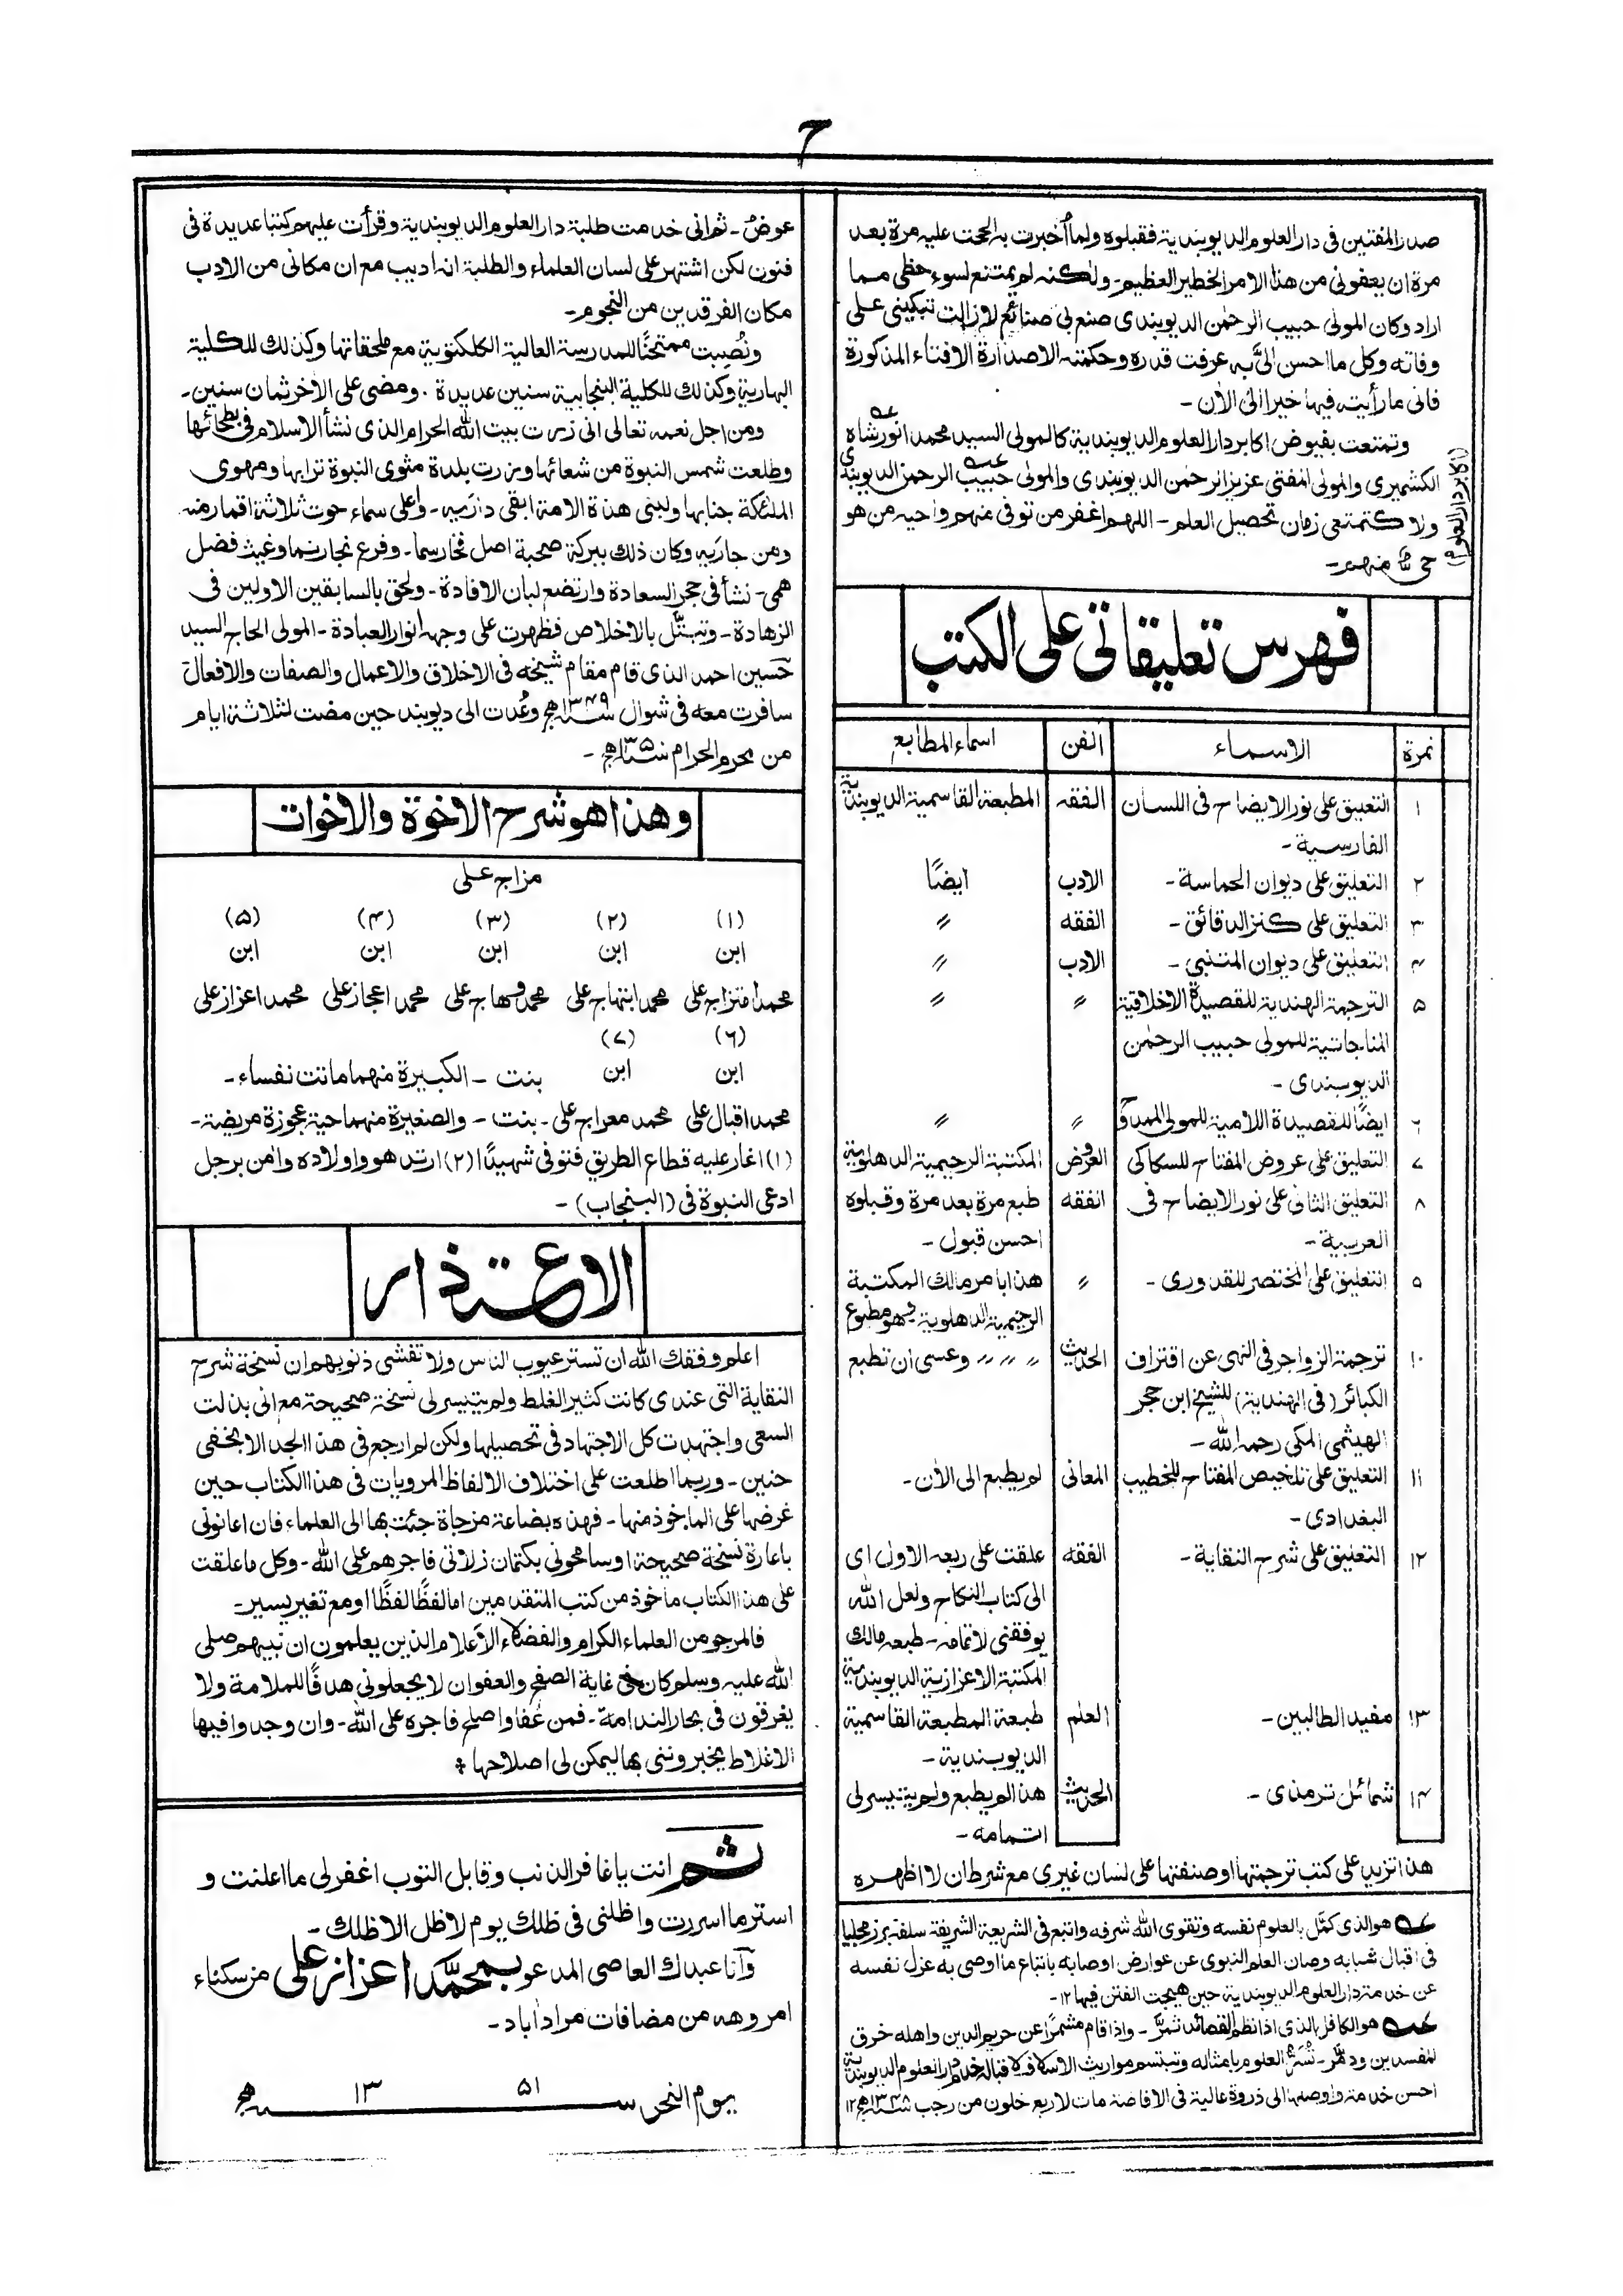 ح
صدر المفتين فى دار العلوم الديوبندية فقبلوه ولما أخبرت به الححت عليه مرة بعد
مرة ان يعفونى من هذا الامر الخطير العظيم۔ ولكنه لم يمتنع لسوء حظى مما
اراد وكان المولى حبيب الرحمن الديوبندى صنع بى صنائع لازالت تبكينى على
وفاته وكل ما احسن الىَّ به عرفت قدره وحكمته الا صدارة الافتاء المذكورة
فانى ما رأيت فيها خيرا الى الاٰن۔
وتمتعت بفيوض اكابر دار العلوم الديوبندية كالمولى السيد محمد انور شاه عه
الكشميرى والمولى المفتى عزيز الرحمٰن الديوبندى والمولى حبيب الرحمن الديوبندى عــه
ولا كتمتعى زمان تحصيل العلم۔ اللهم اغفر من توفى منهم واحبه من هو
حى منهم۔
(اكابر دار العلوم)
فهرس تعليقاتى على الكتب
نمرة الاسماء الفن اسماء المطابع
١ التعليق على نور الايضاح فى اللسان الفقه المطبعة القاسمية الديوبندية
الفارسية۔
٢ التعليق على ديوان الحماسة۔ الادب ايضًا
٣ التعليق على كنز الدقائق۔ الفقه 〃
۴ التعليق على ديوان المتنبى۔ الادب 〃
۵ الترجمة الهندية للقصيدة الاخلاقية 〃 〃
المناجاتية للمولى حبيب الرحمٰن
الديوبندى۔
٦ ايضًا للقصيدة اللامية للمولى الممدوح 〃 〃
٧ التعليق على عروض المفتاح للسكاكى العروض المكتبة الرحيمية الدهلوية
٨ التعليق الثانى على نور الايضاح فى الفقه طبع مرة بعد مرة وقبلوه
العربية۔ احسن قبول۔
٩ التعليق على المختصر للقدورى۔ 〃 هذا بامر مالك المكتبة
الرحيمية الدهلوية فهو مطبوع
١٠ ترجمة الزواجر فى النهى عن اقتراف الحديث 〃 〃 〃 وعسى ان تطبع
الكبائر (فى الهندية) للشيخ ابن حجر
الهيثمى المكى رحمه الله۔
١١ التعليق على تلخيص المفتاح للخطيب المعانى لم يطبع الى الاٰن۔
البغدادى۔
١٢ التعليق على شرح النقاية۔ الفقه علقت على ربعه الاول اى
الى كتاب النكاح ولعل الله
يوفقنى لاتمامه۔ طبعه مالك
المكتبة الاعزازية الديوبندية
١٣ مفيد الطالبين۔ العلم طبعة المطبعة القاسمية
الديوبندية۔
١۴ شمائل ترمذى۔ الحديث هذا لم يطبع ولم يتيسر لى
اتمامه۔
هذا تزيد على كتب ترجمتها او صنفتها على لسان غيرى مع شرط ان لا اظهره
عــه هو الذى كمّل بالعلوم نفسه وتقوى الله شرفه واتبع فى الشريعة الشريفة سلفه برز مجليا
فى اقبال شبابه وصان العلم النبوى عن عوارض اوصابه باتباع ما اوصى به عزل نفسه
عن خدمة دار العلوم الديوبندية حين هيجت الفتن فيها ١٢۔
عــه هو الكافل الذى اذا نظم القصائد نمرَّ۔ واذا قام مشمرًا عن حريم الدين واهله خرق
المفسدين ودمّر۔ العلوم بامثاله وتبتسم مواريث الاسلاف لاقباله خدم دار العلوم الديوبندية
احسن خدمة واوصلها الى ذروة عالية فى الافاضة مات لاربع خلون من رجب سنة ١٣۴٨ھ ١٢
عوضٌ۔ ثم انى خدمت طلبة دار العلوم الديوبندية وقرأت عليهم كتبا عديدة فى
فنون لكن اشتهر على لسان العلماء والطلبة انه اديب مع ان مكانى من الادب
مكان الفرقدين من النجوم۔
ونُصِبت ممتحنًا للمدرسة العالية الكلكتوية مع ملحقاتها وكذلك للكلية
البهارية وكذلك للكلية البنجابية سنين عديدة۔ ومضى على الاٰخر ثمان سنين۔
ومن اجل نعمه تعالى انى زرت بيت الله الحرام الذى نشأ الاسلام فى بطحائها
وطلعت شمس النبوة من شعائها وزرت بلدة مثوى النبوة ترابها ومهوى
الملئكة جنابها ولبنى هذه الامة ابقى دارَيه۔ واعلى سماء حوت ثلاثة اقمار منه
ومن جارَيه وكان ذلك ببركة صحبة اصل فخار سما۔ وفرع نجار نما وغيث فضل
همى۔ نشأ فى حجر السعادة وارتضع لبان الافادة۔ ولحق بالسابقين الاولين فى
الزهادة۔ وتبتّل بالاخلاص فظهرت على وجهه انوار العبادة۔ المولى الحاج السيد
حسين احمد الذى قام مقام شيخه فى الاخلاق والاعمال والصفات والافعال
سافرت معه فى شوال سنة ١٣۴٩ھ وعُدت الى ديوبند حين مضت لثلاثة ايام
من محرم الحرام سنة ١٣۵٠ھ۔
وهذا هو شرح الاخوة والاخوات
مزاج على
(١) (٢) (٣) (۴) (۵)
ابن ابن ابن ابن ابن
محمد امتزاج على محمد ابتهاج على محمد وهاج على محمد اعجاز على محمد اعزاز على
(٦) (٧)
ابن ابن بنت۔ الكبيرة منهما ماتت نفساء۔
محمد اقبال على محمد معراج على۔ بنت۔ والصغيرة منهما حية عجوزة مريضة۔
(١) اغار عليه قطاع الطريق فتوفى شهيدًا (٢) ارتد هو واولاده وامن برجل
ادعى النبوة فى (البنجاب)۔
الاعتذار
اعلم وفقك الله ان تستر عيوب الناس ولا تفشى ذنوبهم ان نسخة شرح
النقاية التى عندى كانت كثير الغلط ولم يتيسر لى نسخة صحيحة مع انى بذلت
السعى واجتهدت كل الاجتهاد فى تحصيلها ولكن لم ارجع فى هذا الجد الا بخفى
حنين۔ وربما اطلعت على اختلاف الالفاظ المرويات فى هذا الكتاب حين
عرضها على الماخوذ منها۔ فهذه بضاعة مزجاة جئت بها الى العلماء فان اعانونى
باعارة نسخة صحيحة او سامحونى بكتمان زلاتى فاجرهم على الله۔ وكل ما علقت
على هذا الكتاب ماخوذ من كتب المتقدمين اما لفظًا لفظًا او مع تغير يسير۔
فالمرجو من العلماء الكرام والفضلاء الاَعلام الذين يعلمون ان نبيهم صلى
الله عليه وسلم كان فى غاية الصفح والعفو ان لا يجعلونى هدفًا للملامة ولا
يغرقون فى بحار الندامة۔ فمن عفا واصلح فاجره على الله۔ وان وجدوا فيها
الاغلاط يخبروننى بها ليمكن لى اصلاحها ÷
ثم انت يا غافر الذنب وقابل التوب اغفر لى ما اعلنت و
استر ما اسررت واظلنى فى ظلك يوم لا ظل الا ظلك۔
وانا عبدك العاصى المدعو بمحمّد اعزاز على من سكناء
امروهه من مضافات مراداٰباد۔
يوم النحر سنة ١٣۵١ھ